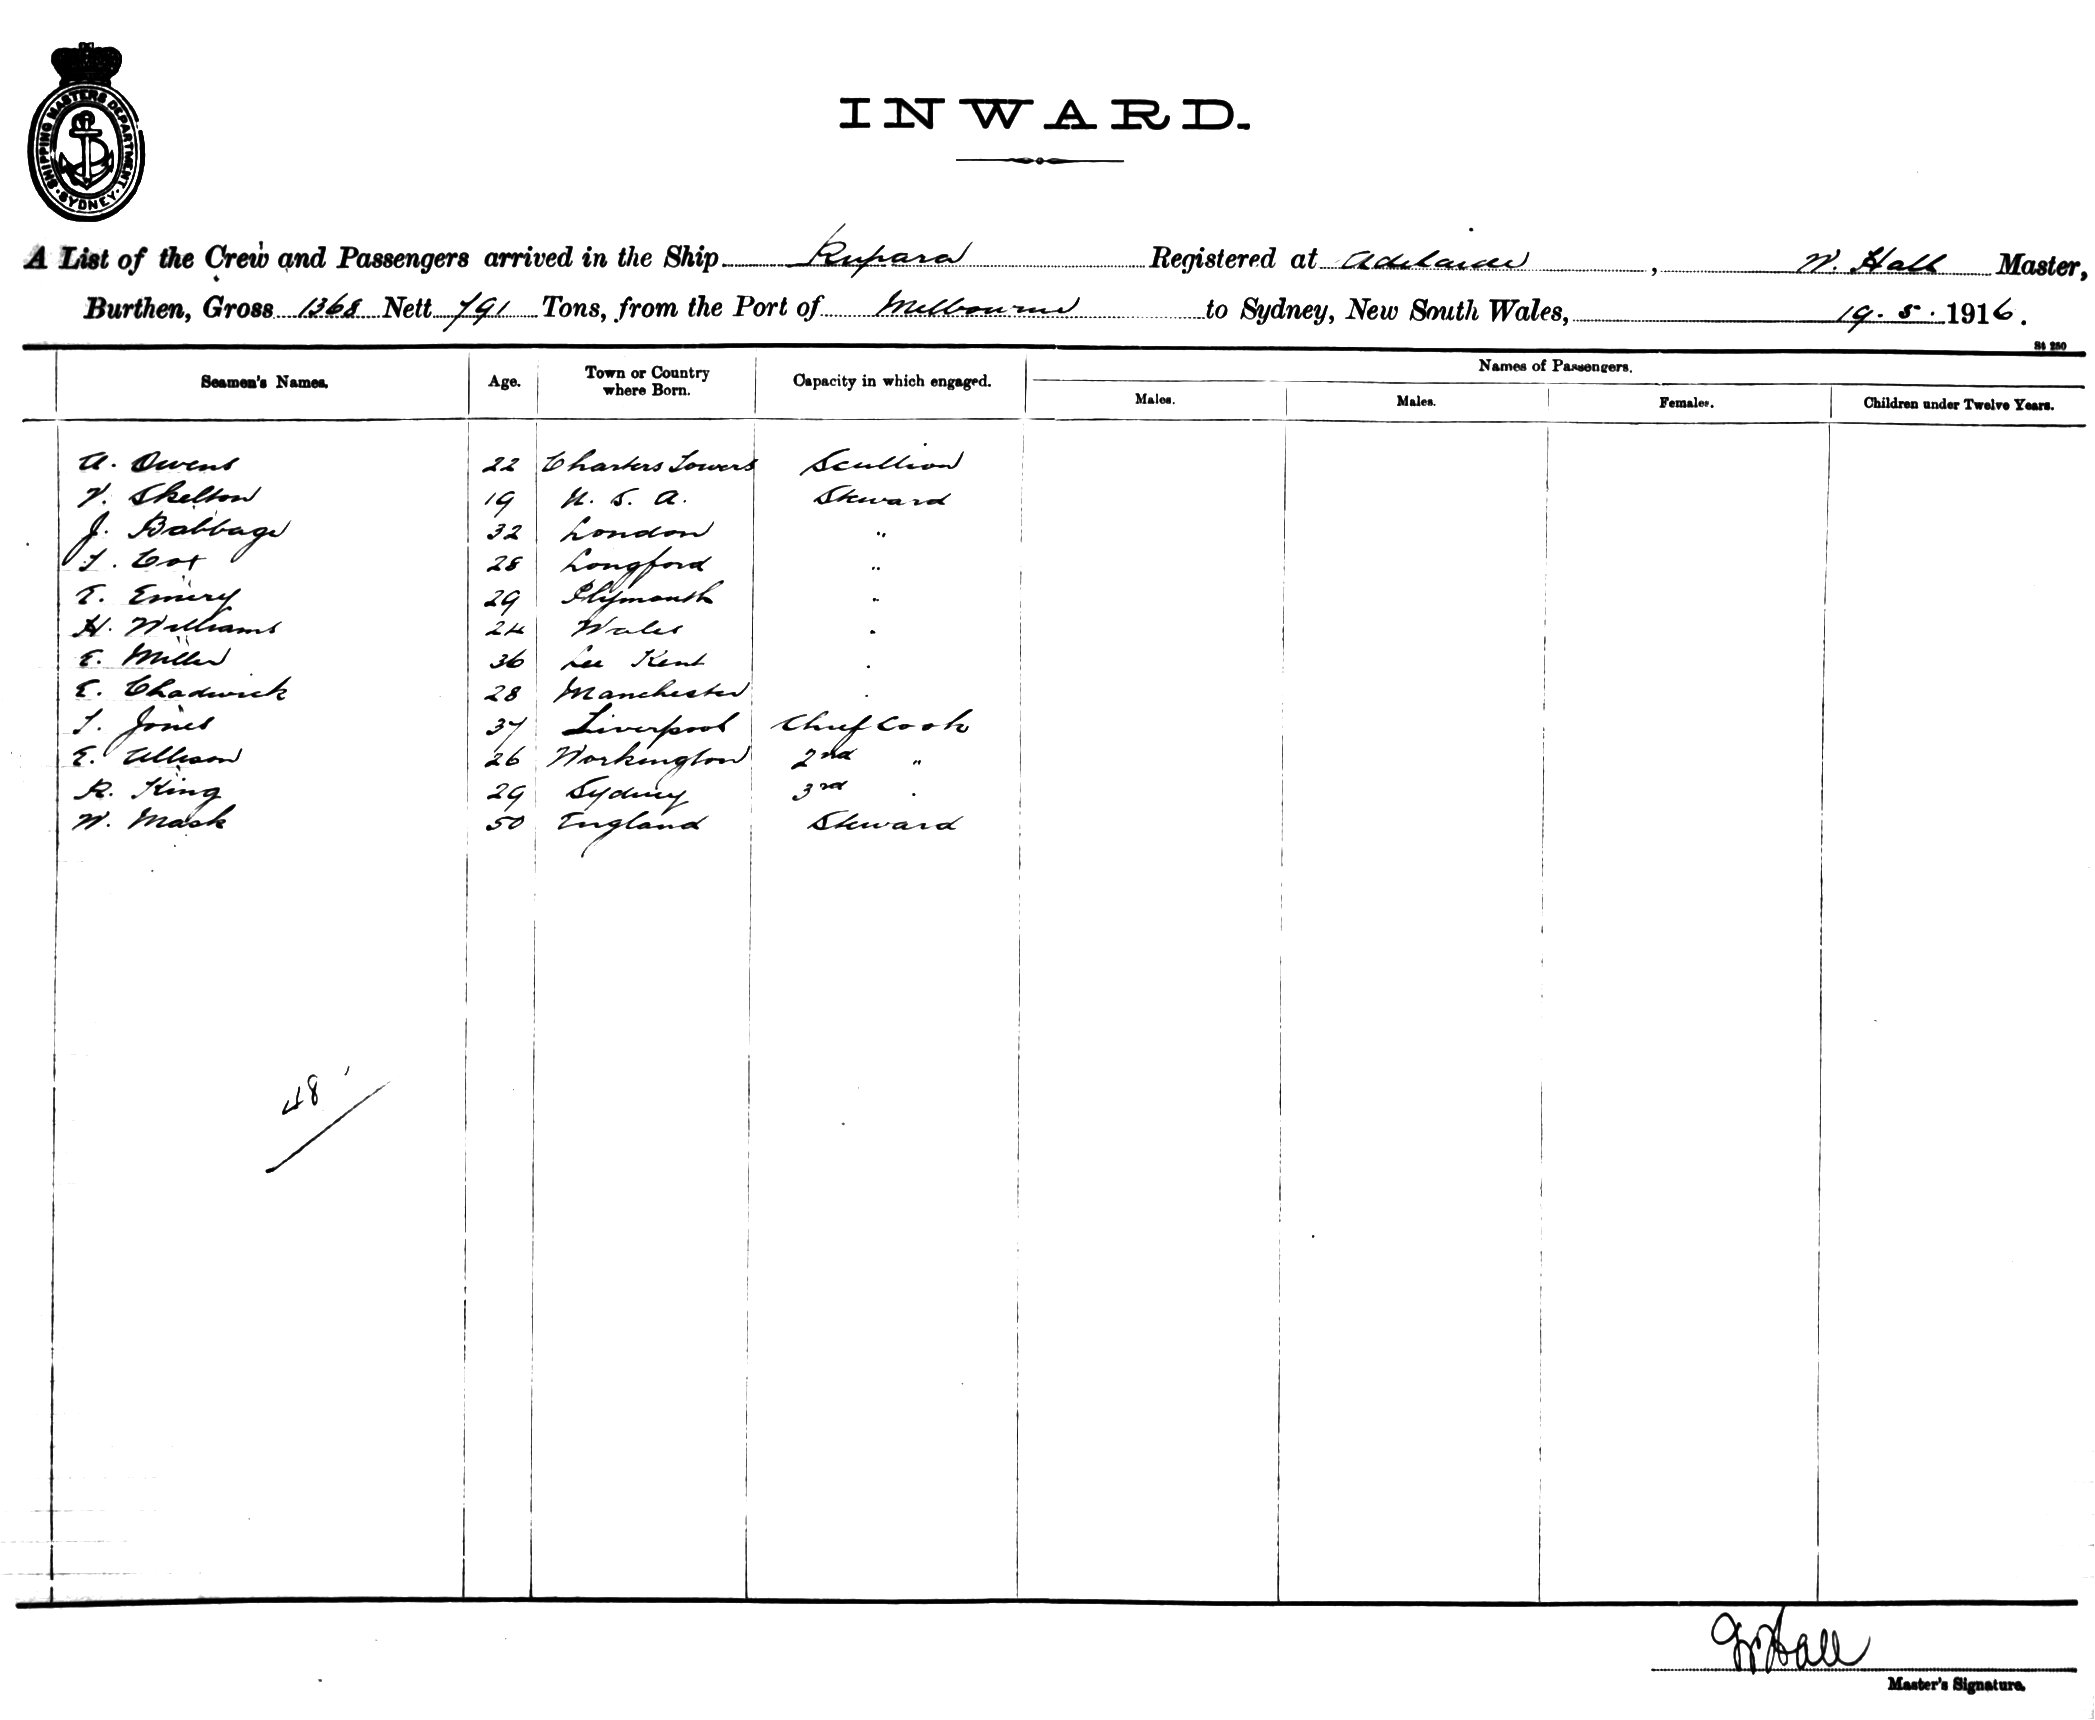 SHIPPING MASTERS DEPARTMENT · SYDNEY ·
INWARD.
A List of the Crew and Passengers arrived in the Ship Rupara Registered at Adelaide, W. Hall Master,
Burthen, Gross 1368 Nett 791 Tons, from the Port of Melbourne to Sydney, New South Wales, 19. 5. 1916.
St 280
Seamen's Names. Age. Town or Country where Born. Capacity in which engaged. Names of Passengers.
Males. Males. Females. Children under Twelve Years.
A. Owens 22 Charters Towers Scullion
V. Skelton 19 U. S. A. Steward
J. Babbage 32 London "
T. Cox 28 Longford "
E. Emery 29 Plymouth "
H. Williams 24 Wales "
E. Miller 36 Lee Kent "
E. Chadwick 28 Manchester "
T. Jones 37 Liverpool Chief Cook
E. Allison 26 Workington 2nd "
R. King 29 Sydney 3rd "
W. Mask 50 England Steward
48
W Hall
Master's Signature.